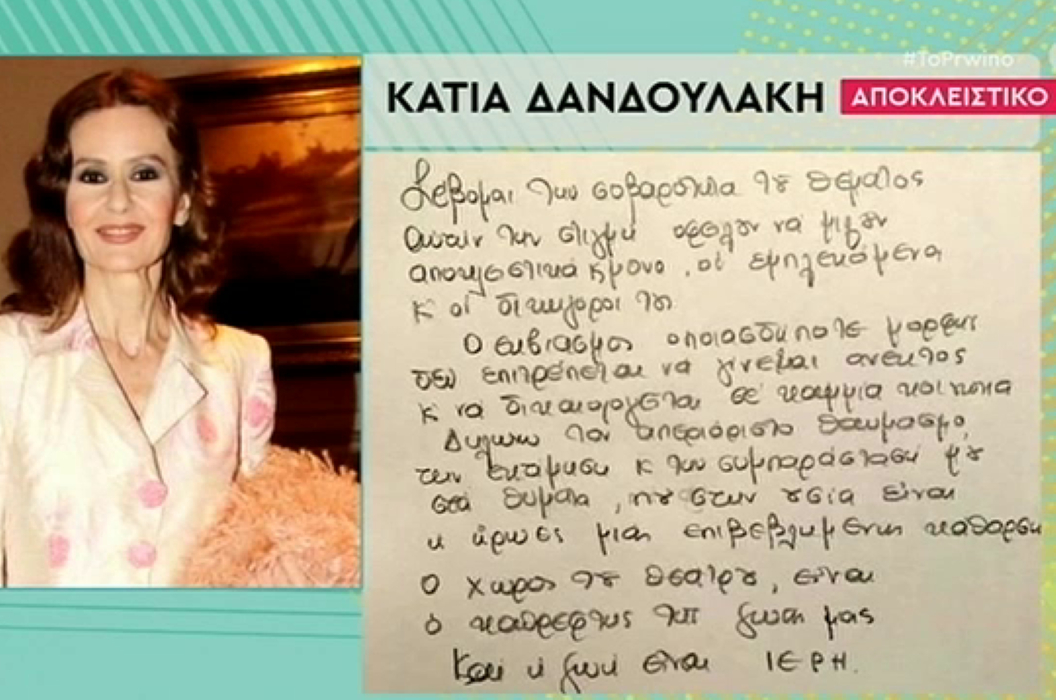 #ToPrwino
ΚΑΤΙΑ ΔΑΝΔΟΥΛΑΚΗ ΑΠΟΚΛΕΙΣΤΙΚΟ
Σέβομαι την σοβαρότητα τȣ θέματος
Αυτήν την στιγμή οφείλουν να μιλȣν
αποκλειστικά κ μόνο, οι εμπλεκόμενοι
κ οι δικηγόροι τȣς
Ο εκβιασμός οποιασδήποτε μορφής
δεν επιτρέπεται να γίνεται ανεκτός
κ να δικαιολογείται σε καμμία κοινωνία
Δηλώνω τον απεριόριστο θαυμασμό,
την εκτίμηση κ την συμπαράστασή μȣ
στα θύματα, πȣ στην ȣσία είναι
κ ήρωες μιας επιβεβλημένης κάθαρσης
Ο χώρος τȣ θεάτρȣ, είναι
ο καθρέφτης της ζωής μας
Και η ζωή είναι ΙΕΡΗ.